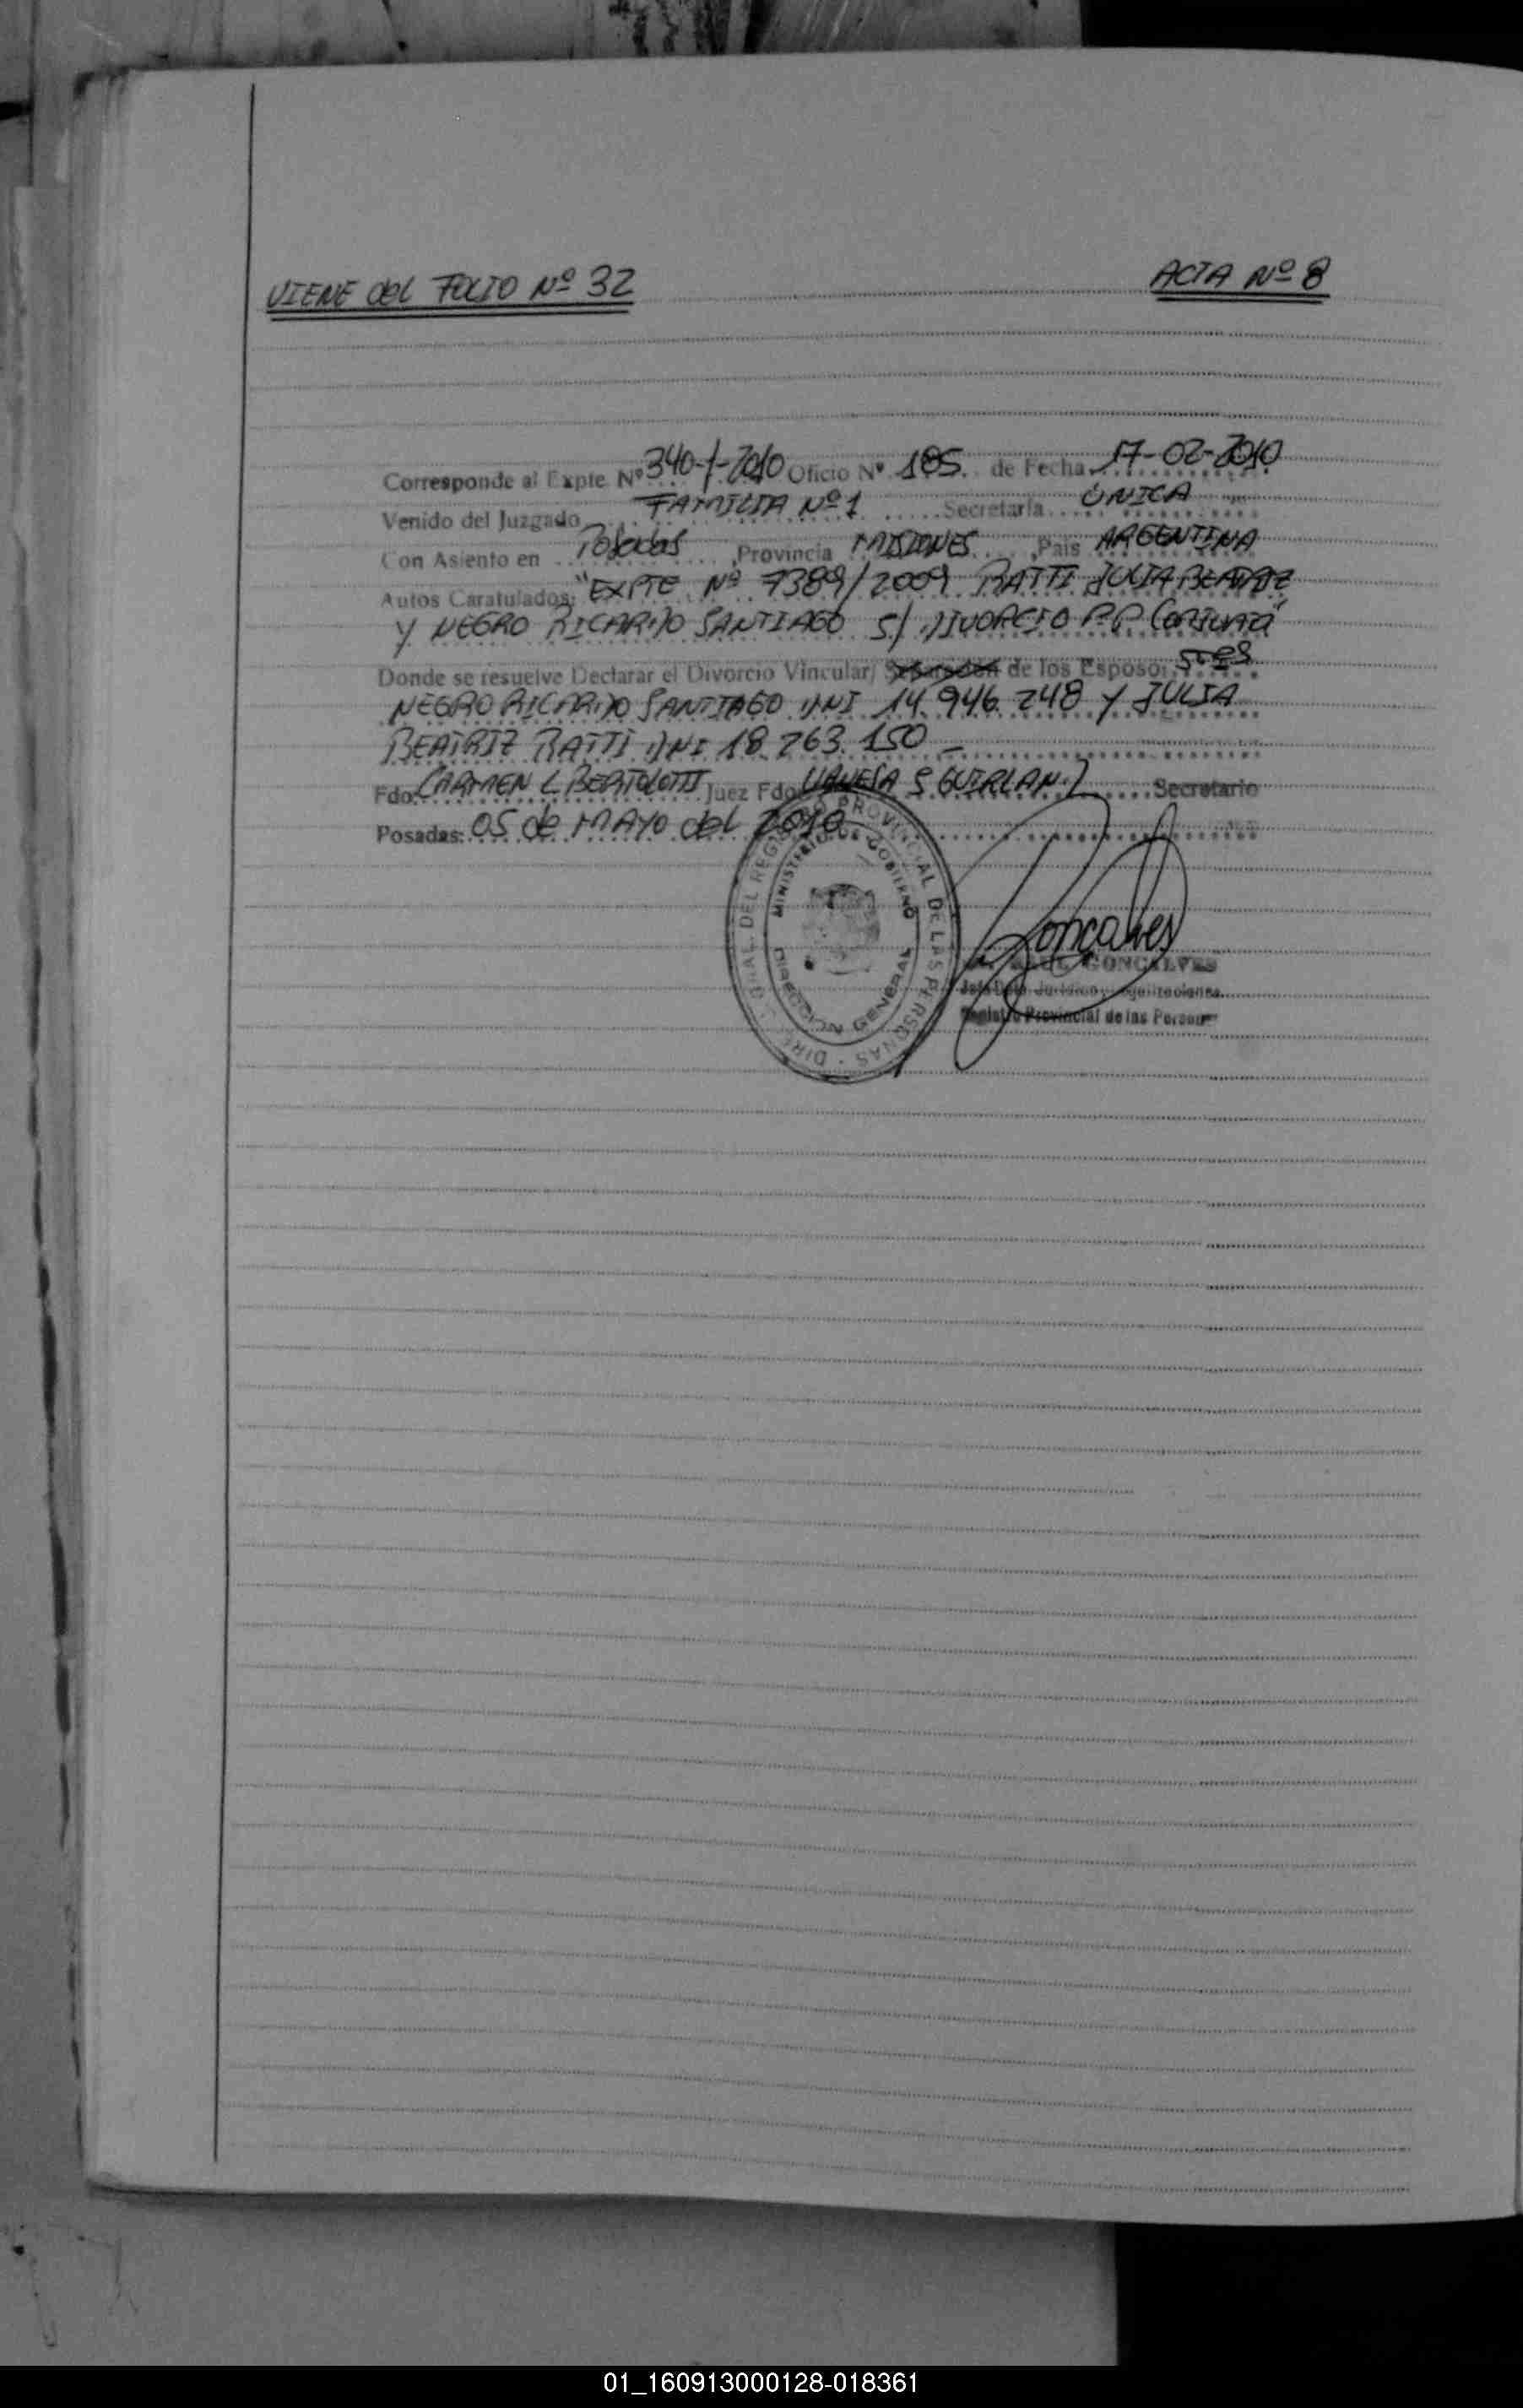 VIENE del FOLIO Nº 32
ACTA Nº 8
Corresponde al Expte. Nº 340-J-2010 Oficio Nº 185 de Fecha 17-02-2010
Venido del Juzgado FAMILIA Nº 1 Secretaría UNICA
Con Asiento en Posadas, Provincia MISIONES, País ARGENTINA
Autos Caratulados: "EXPTE Nº 7389/2009 RATTI JULIA BEATRIZ
Y NEGRO RICARDO SANTIAGO S/ DIVORCIO P.P Conjunta"
Donde se resuelve Declarar el Divorcio Vincular/ Separación de los Esposos, Sres
NEGRO RICARDO SANTIAGO DNI 14.946.248 Y JULIA
BEATRIZ RATTI DNI 18.263.150 -
Fdo. CARMEN L BERTOLOTTI Juez Fdo. VANESA S. GUIRLAND Secretario
Posadas: 05 de MAYO del 2010
DIRE GRAL. DEL REGISTRO PROVINCIAL DE LAS PERSONAS
MINISTERIO DE GOBIERNO
DIRECCION GENERAL
Goncalves
RAUL GONCALVES
Jefe Dpto. Jurídico y
Registro Provincial de las Personas
01_160913000128-018361